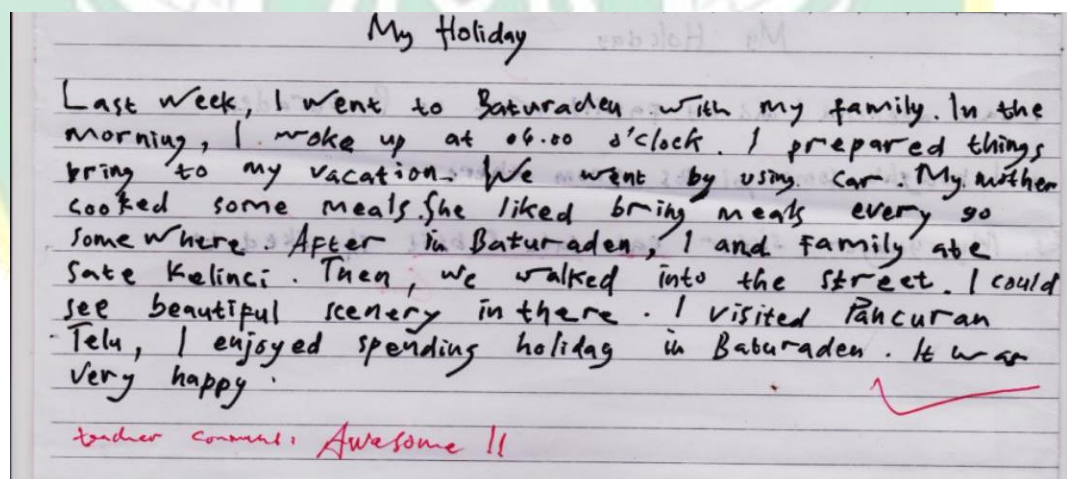 My Holiday
Last week, I went to Baturaden with my family. In the
morning, I woke up at 06.00 o'clock. I prepared things
bring to my vacation. We went by using car. My mother
cooked some meals. She liked bring meals every go
somewhere. After in Baturaden, I and family ate
sate kelinci. Then, we walked into the street. I could
see beautiful scenery in there. I visited Pancuran
Telu, I enjoyed spending holiday in Baturaden. It was
very happy.
teacher comment: Awesome !!